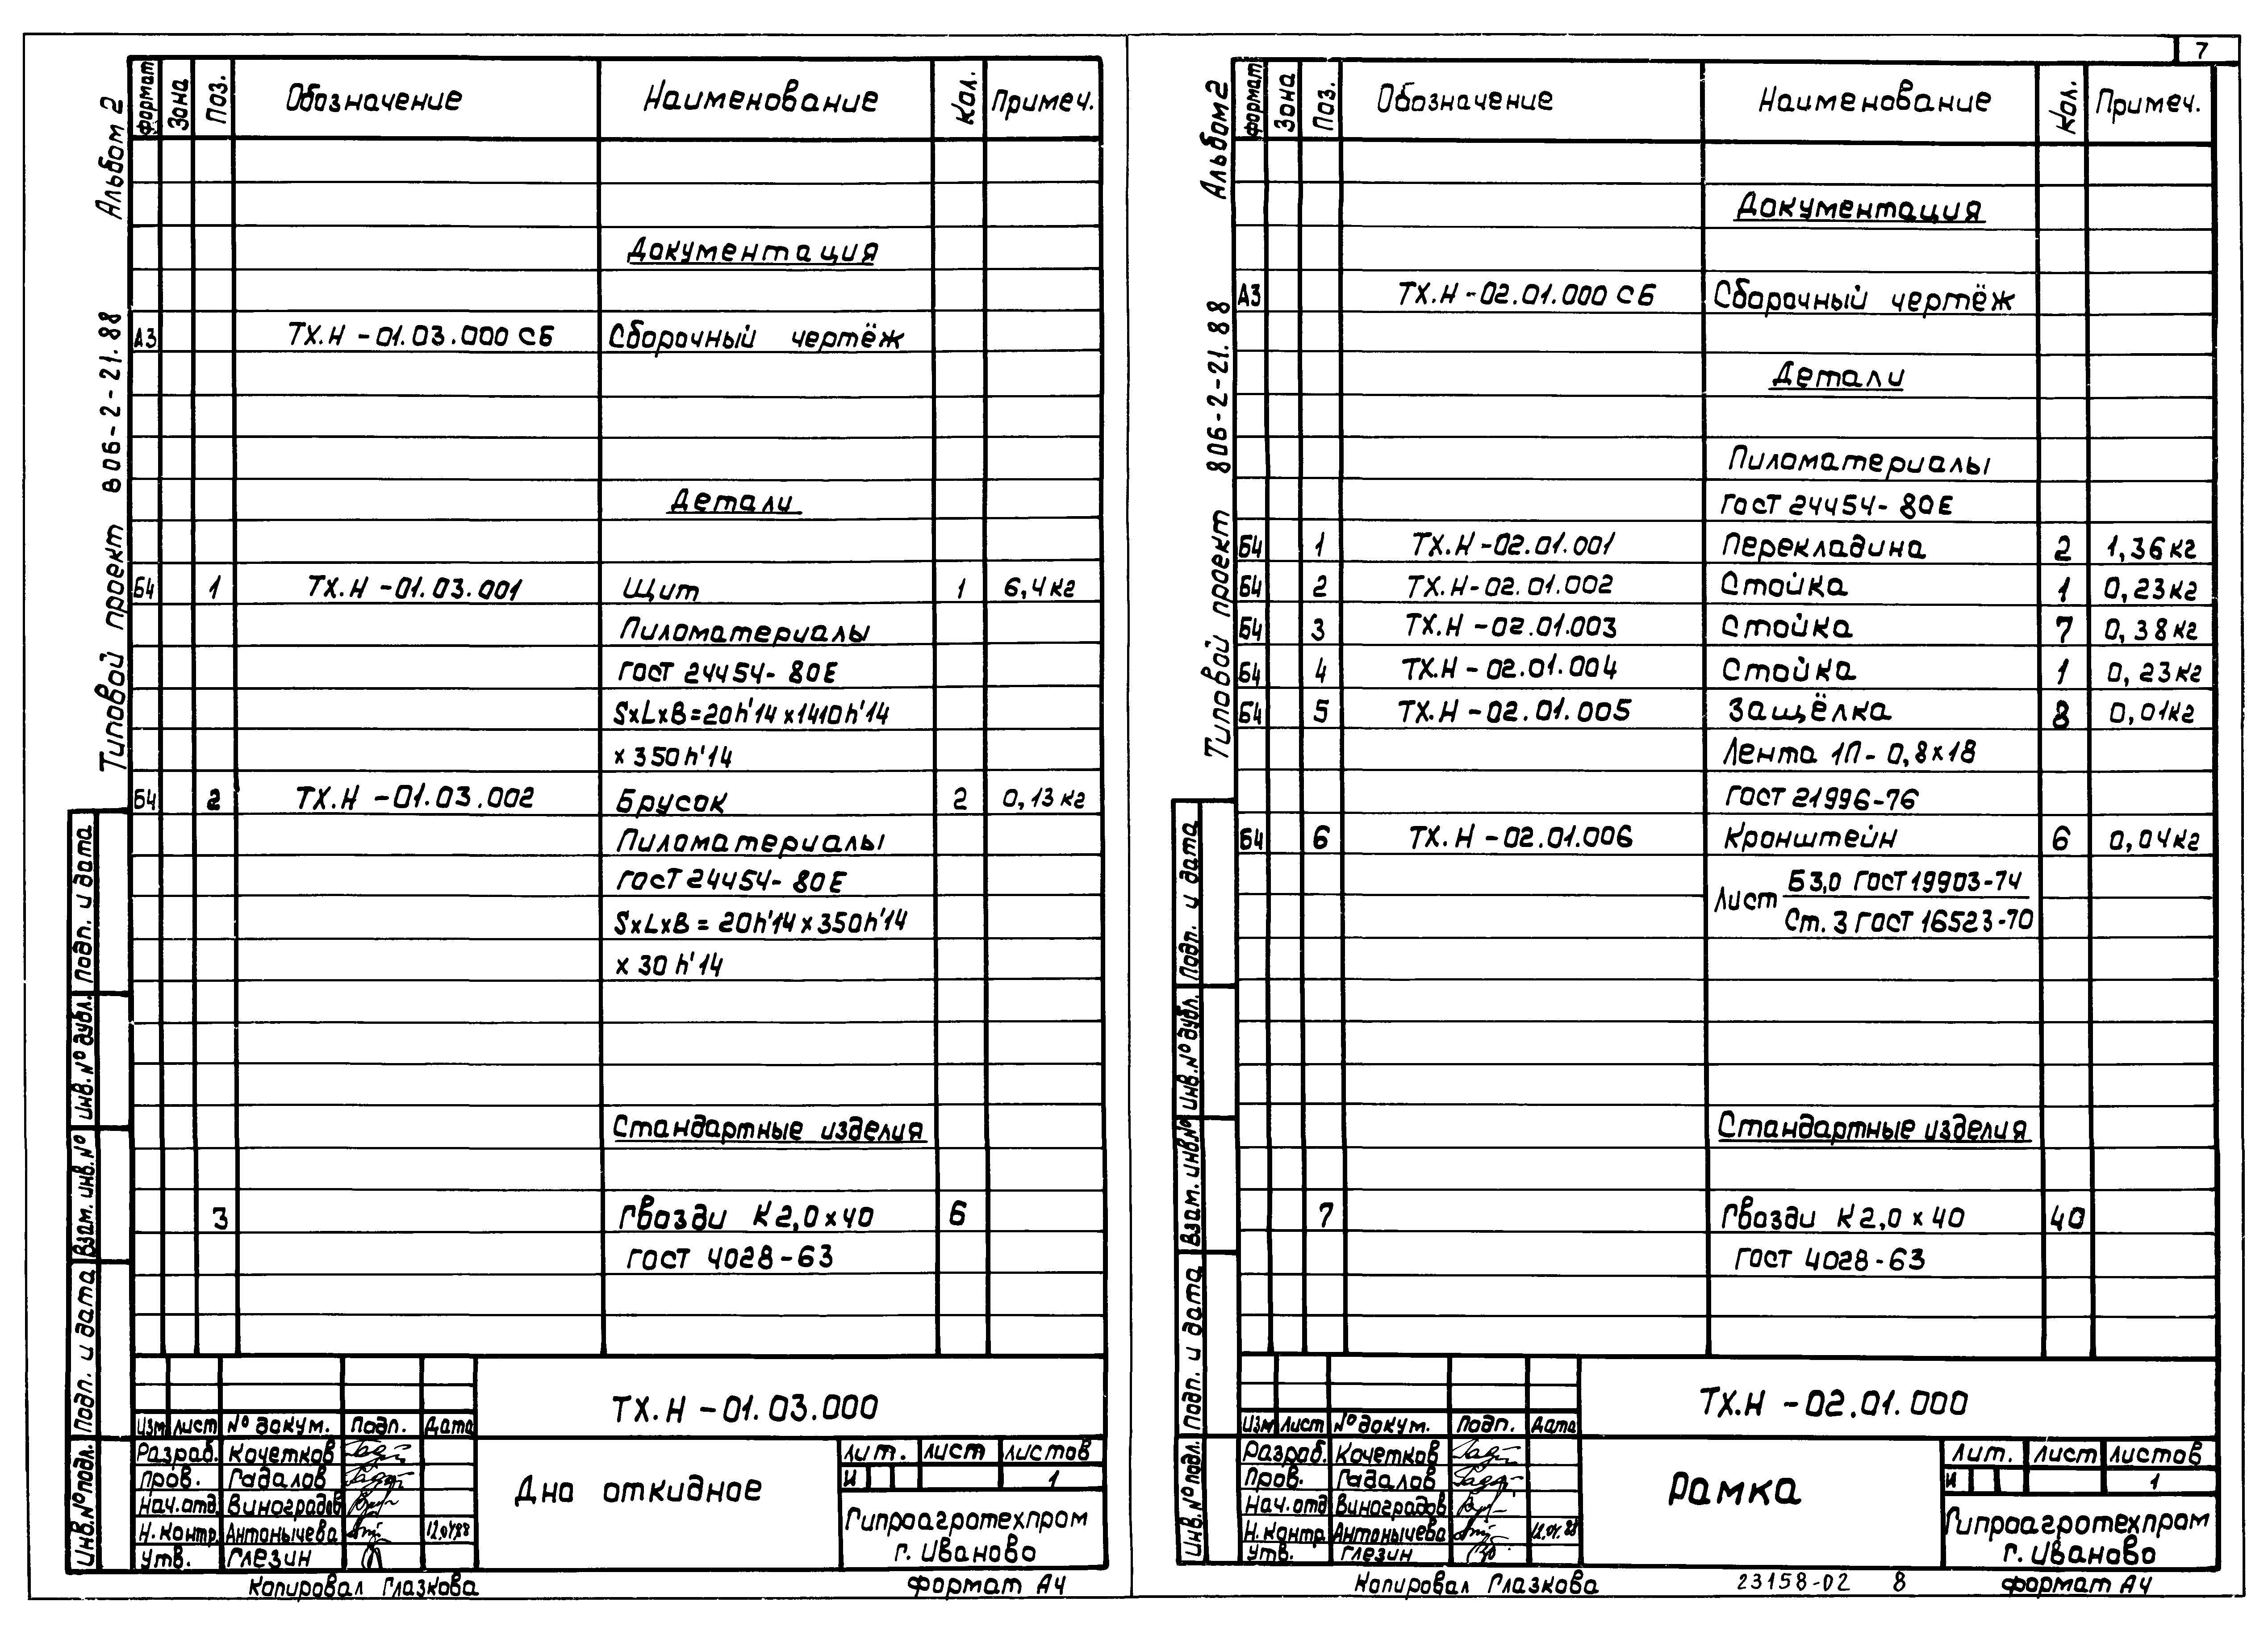 7
Альбом 2
Типовой проект 806-2-21.88
Формат Зона Поз. Обозначение Наименование Кол. Примеч.
Документация
А3 ТХ.Н-01.03.000 СБ Сборочный чертёж
Детали
Б4 1 ТХ.Н-01.03.001 Щит 1 6,4кг
Пиломатериалы
ГОСТ 24454-80Е
SxLxB=20h'14x1410h'14
x350h'14
Б4 2 ТХ.Н-01.03.002 Брусок 2 0,13кг
Пиломатериалы
ГОСТ 24454-80Е
SxLxB=20h'14x350h'14
x30h'14
Стандартные изделия
3 Гвозди К2,0х40 6
ГОСТ 4028-63
Подп. и дата
Инв.№ дубл.
Взам. инв.№
Подп. и дата
Инв.№ подл.
ТХ.Н-01.03.000
Изм Лист № докум. Подп. Дата
Разраб. Кочетков
Пров. Гадалов
Нач.отд. Виноградов
Н.контр. Антонычева 12.04.88
Утв. Глезин
Дно откидное
Лит. Лист Листов
И 1
Гипроагротехпром
г. Иваново
Копировал Глазкова
Формат А4
Альбом 2
Типовой проект 806-2-21.88
Формат Зона Поз. Обозначение Наименование Кол. Примеч.
Документация
А3 ТХ.Н-02.01.000 СБ Сборочный чертёж
Детали
Пиломатериалы
ГОСТ 24454-80Е
Б4 1 ТХ.Н-02.01.001 Перекладина 2 1,36кг
Б4 2 ТХ.Н-02.01.002 Стойка 1 0,23кг
Б4 3 ТХ.Н-02.01.003 Стойка 7 0,38кг
Б4 4 ТХ.Н-02.01.004 Стойка 1 0,23кг
Б4 5 ТХ.Н-02.01.005 Защёлка 8 0,01кг
Лента 1П-0,8х18
ГОСТ 21996-76
Б4 6 ТХ.Н-02.01.006 Кронштейн 6 0,04кг
Лист Б3,0 ГОСТ 19903-74
Ст.3 ГОСТ 16523-70
Стандартные изделия
7 Гвозди К2,0х40 40
ГОСТ 4028-63
Подп. и дата
Инв.№ дубл.
Взам. инв.№
Подп. и дата
Инв.№ подл.
ТХ.Н-02.01.000
Изм Лист № докум. Подп. Дата
Разраб. Кочетков
Пров. Гадалов
Нач.отд Виноградов
Н.контр. Антонычева 12.04.88
Утв. Глезин
Рамка
Лит. Лист Листов
И 1
Гипроагротехпром
г. Иваново
Копировал Глазкова
23158-02 8
Формат А4